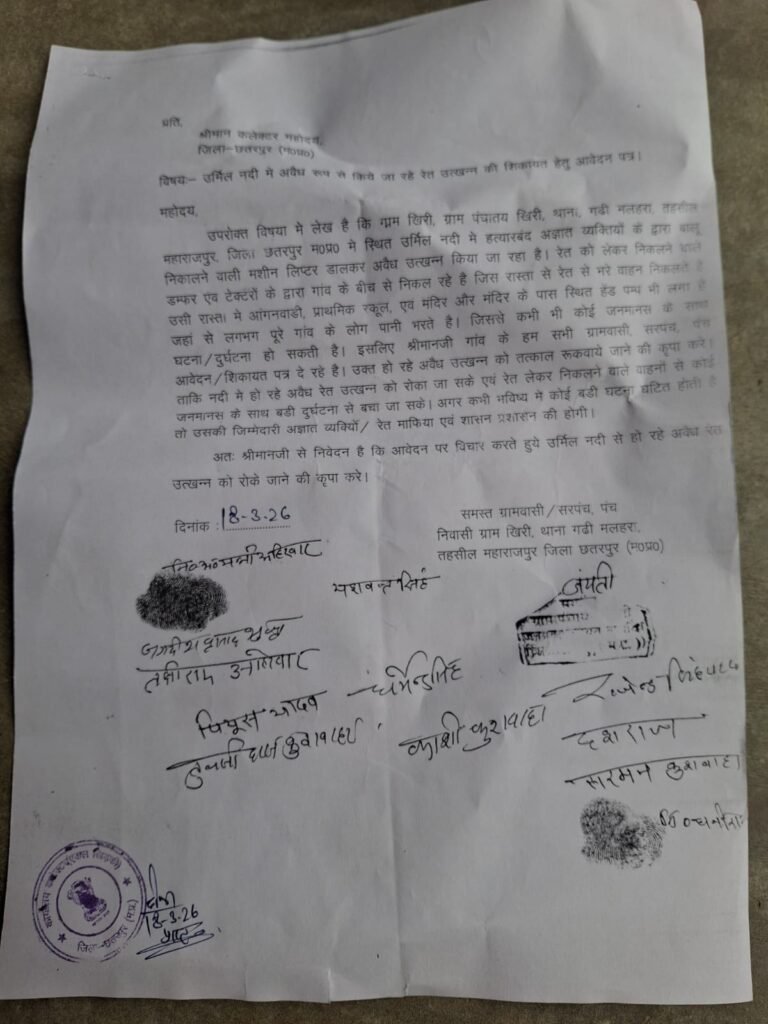 प्रति,
श्रीमान कलेक्टर महोदय,
जिला–छतरपुर (म0प्र0)
विषयः– उर्मिल नदी मे अवैध रूप से किये जा रहे रेत उत्खनन की शिकायत हेतु आवेदन पत्र।
महोदय,
उपरोक्त विषया मे लेख है कि ग्राम खिरी, ग्राम पंचातय खिरी, थाना, गढी मलहरा, तहसील
महाराजपुर, जिला छतरपुर म0प्र0 मे स्थित उर्मिल नदी मे हत्यारबंद अज्ञात व्यक्तियों के द्वारा बालू
निकालने वाली मशीन लिप्टर डालकर अवैध उत्खन्न किया जा रहा है। रेत को लेकर निकलने वाले
डम्फर एंव टेक्टरों के द्वारा गांव के बीच से निकल रहे है जिस रास्ता से रेत से भरे वाहन निकलते है
उसी रास्ता मे आंगनवाडी, प्राथमिक स्कूल, एव मंदिर और मंदिर के पास स्थित हेंड पम्प भी लगा है
जहां से लगभग पूरे गांव के लोग पानी भरते है। जिससे कभी भी कोई जनमानस के साथ
घटना/दुर्घटना हो सकती है। इसलिए श्रीमानजी गांव के हम सभी ग्रामवासी, सरपंच, पंच
आवेदन/शिकायत पत्र दे रहे है। उक्त हो रहे अवैध उत्खन्न को तत्काल रूकवाये जाने की कृपा करे।
ताकि नदी मे हो रहे अवैध रेत उत्खन्न को रोका जा सके एवं रेत लेकर निकलने वाले वाहनों से कोई
जनमानस के साथ बडी दुर्घटना से बचा जा सके। अगर कभी भविष्य मे कोई बडी घटना घटित होती है
तो उसकी जिम्मेदारी अज्ञात व्यक्यिों/ रेत माफिया एवं शासन प्रशासन की होगी।
अतः श्रीमानजी से निवेदन है कि आवेदन पर विचार करते हुये उर्मिल नदी से हो रहे अवैध रेत
उत्खन्न को रोके जाने की कृपा करे।
दिनांक : 18-3-26
समस्त ग्रामवासी/सरपंच, पंच
निवासी ग्राम खिरी, थाना गढी मलहरा,
तहसील महाराजपुर जिला छतरपुर (म0प्र0)
यशवन्त सिंह
जयंती
धर्मेन्द्र सिंह
पियूस यादव
काशी कुशवाहा
दशराज
सरमन कुशवाहा
जिला-छतरपुर (म.प्र.)
18-3-26